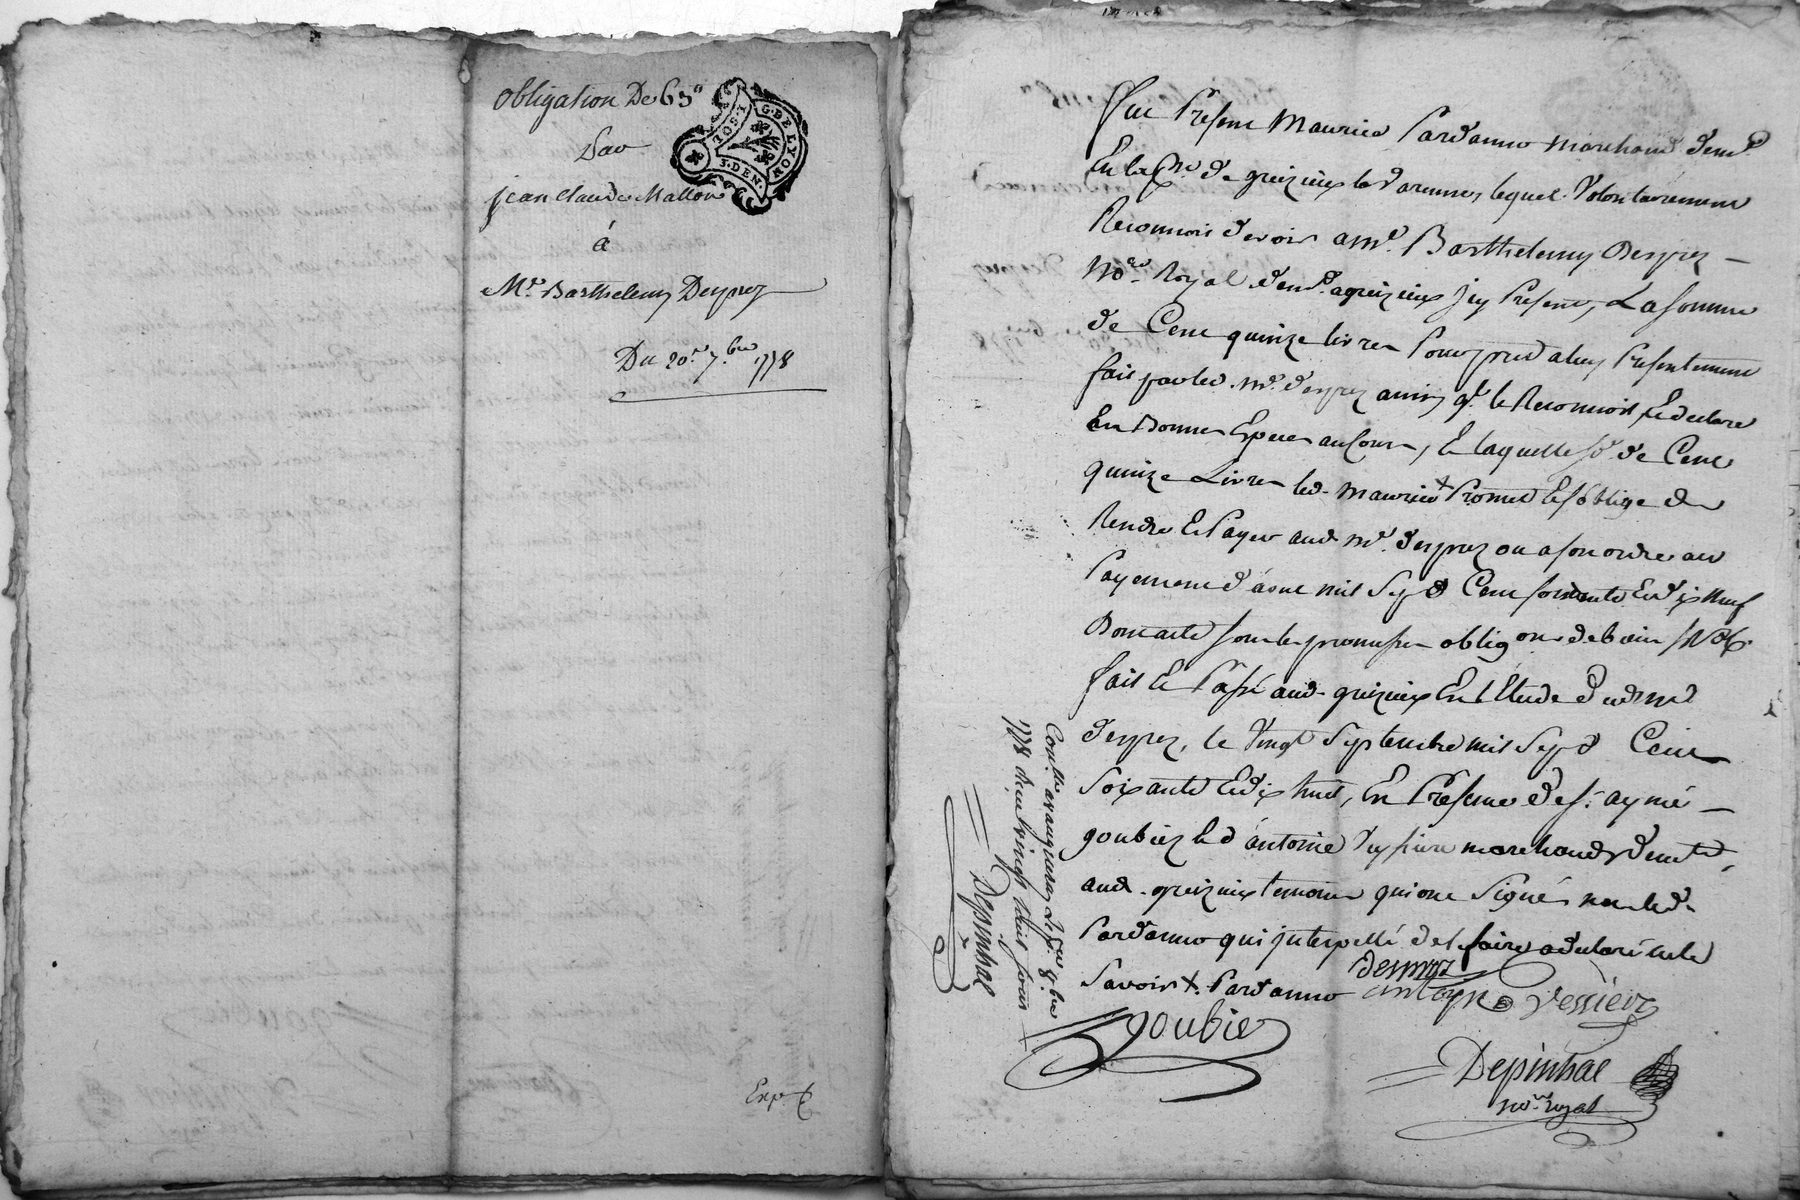 Obligation De 65#
Par
jean Claude Mallon
à
Mre. Barthelemy Desprez
Du 20e. 7.bre 1778
G. DE LYON
3. DEN.
Exp.
fut Present Maurice Pardanno Marchand demt.
En la psse. de greizieux le Varennes, lequel Volontairement
Reconnoit devoir a Me. Barthelemy Desprez
Nore. Royal demt. a greizieux jcy Present, La somme
de Cent quinze livres Pour pret a luy Presentement
fait par led. Me. desprez ainsy q'. le Reconnoit, Et declare
En Bonnes Especes au Cours, Et laquelle so. de Cent
quinze Livres led. Maurice + Promet Et s'oblige de
Rendre Et Payer aud. Me. desprez ou a son ordre au
Payement d'aout mil Sept Cent soixante Et dix Neuf
Dont acte sous les promesses oblig.ons de biens
fait Et Passé aud. greizieux En l'Etude dud. Me.
desprez, le Vingt Septembre mil Sept Cent
Soixante Et dix huit, En Presence de sr. aymé
goubiez Et d'antoine Veyssiere marchands demts.
aud. greizieux temoins qui ont Signés non led.
Pardanno qui jnterpellé de le faire a declaré ne le
Savoir +. Pardanno
desprez
antoyne Vessiere
goubie
Depinhac
nore. royal
Conllé. a
1778 Reçu vingt huit sous
Depinhac